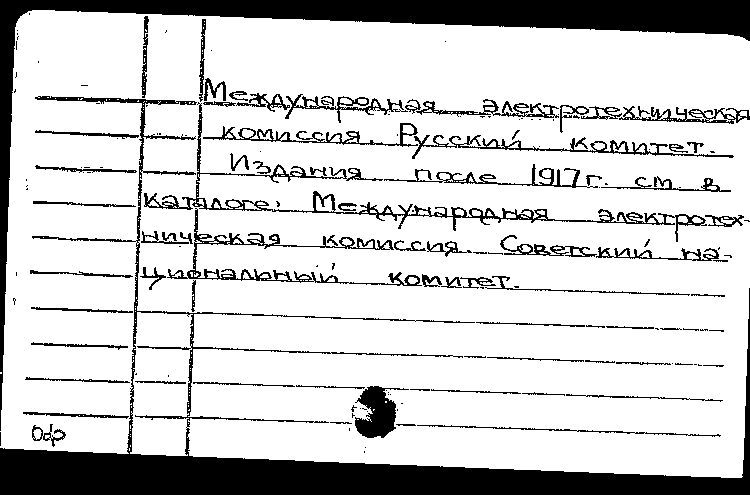 Международная электротехническая
комиссия. Русский комитет.
Издания после 1917г. см в
каталоге: Международная электротех-
ническая комиссия. Советский на-
циональный комитет.
Одр